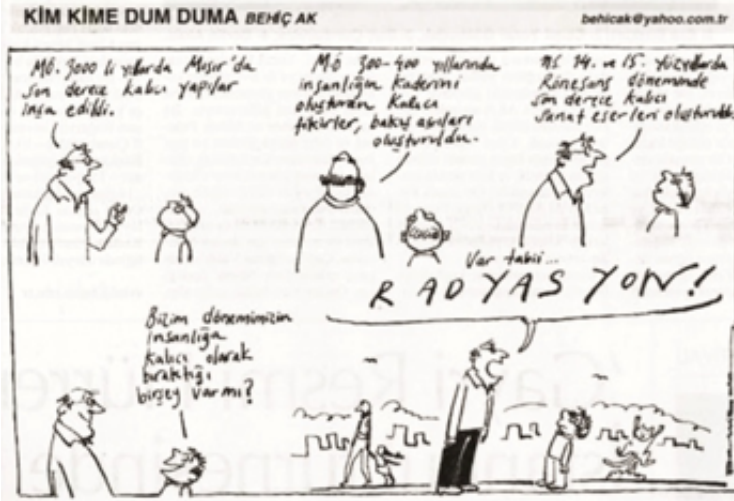 KİM KİME DUM DUMA BEHİÇ AK
behicak@yahoo.com.tr
MÖ. 3000 li yıllarda Mısır'da
son derece kalıcı yapılar
inşa edildi.
MÖ 300-400 yıllarında
insanlığın kaderini
oluşturan kalıcı
fikirler, bakış açıları
oluşturuldu.
MS. 14. ve 15. yüzyıllarda
Rönesans döneminde
son derece kalıcı
sanat eserleri oluşturuldu.
Bizim dönemimizin
insanlığa
kalıcı olarak
bıraktığı
birşey var mı?
Var tabii...
RADYASYON!